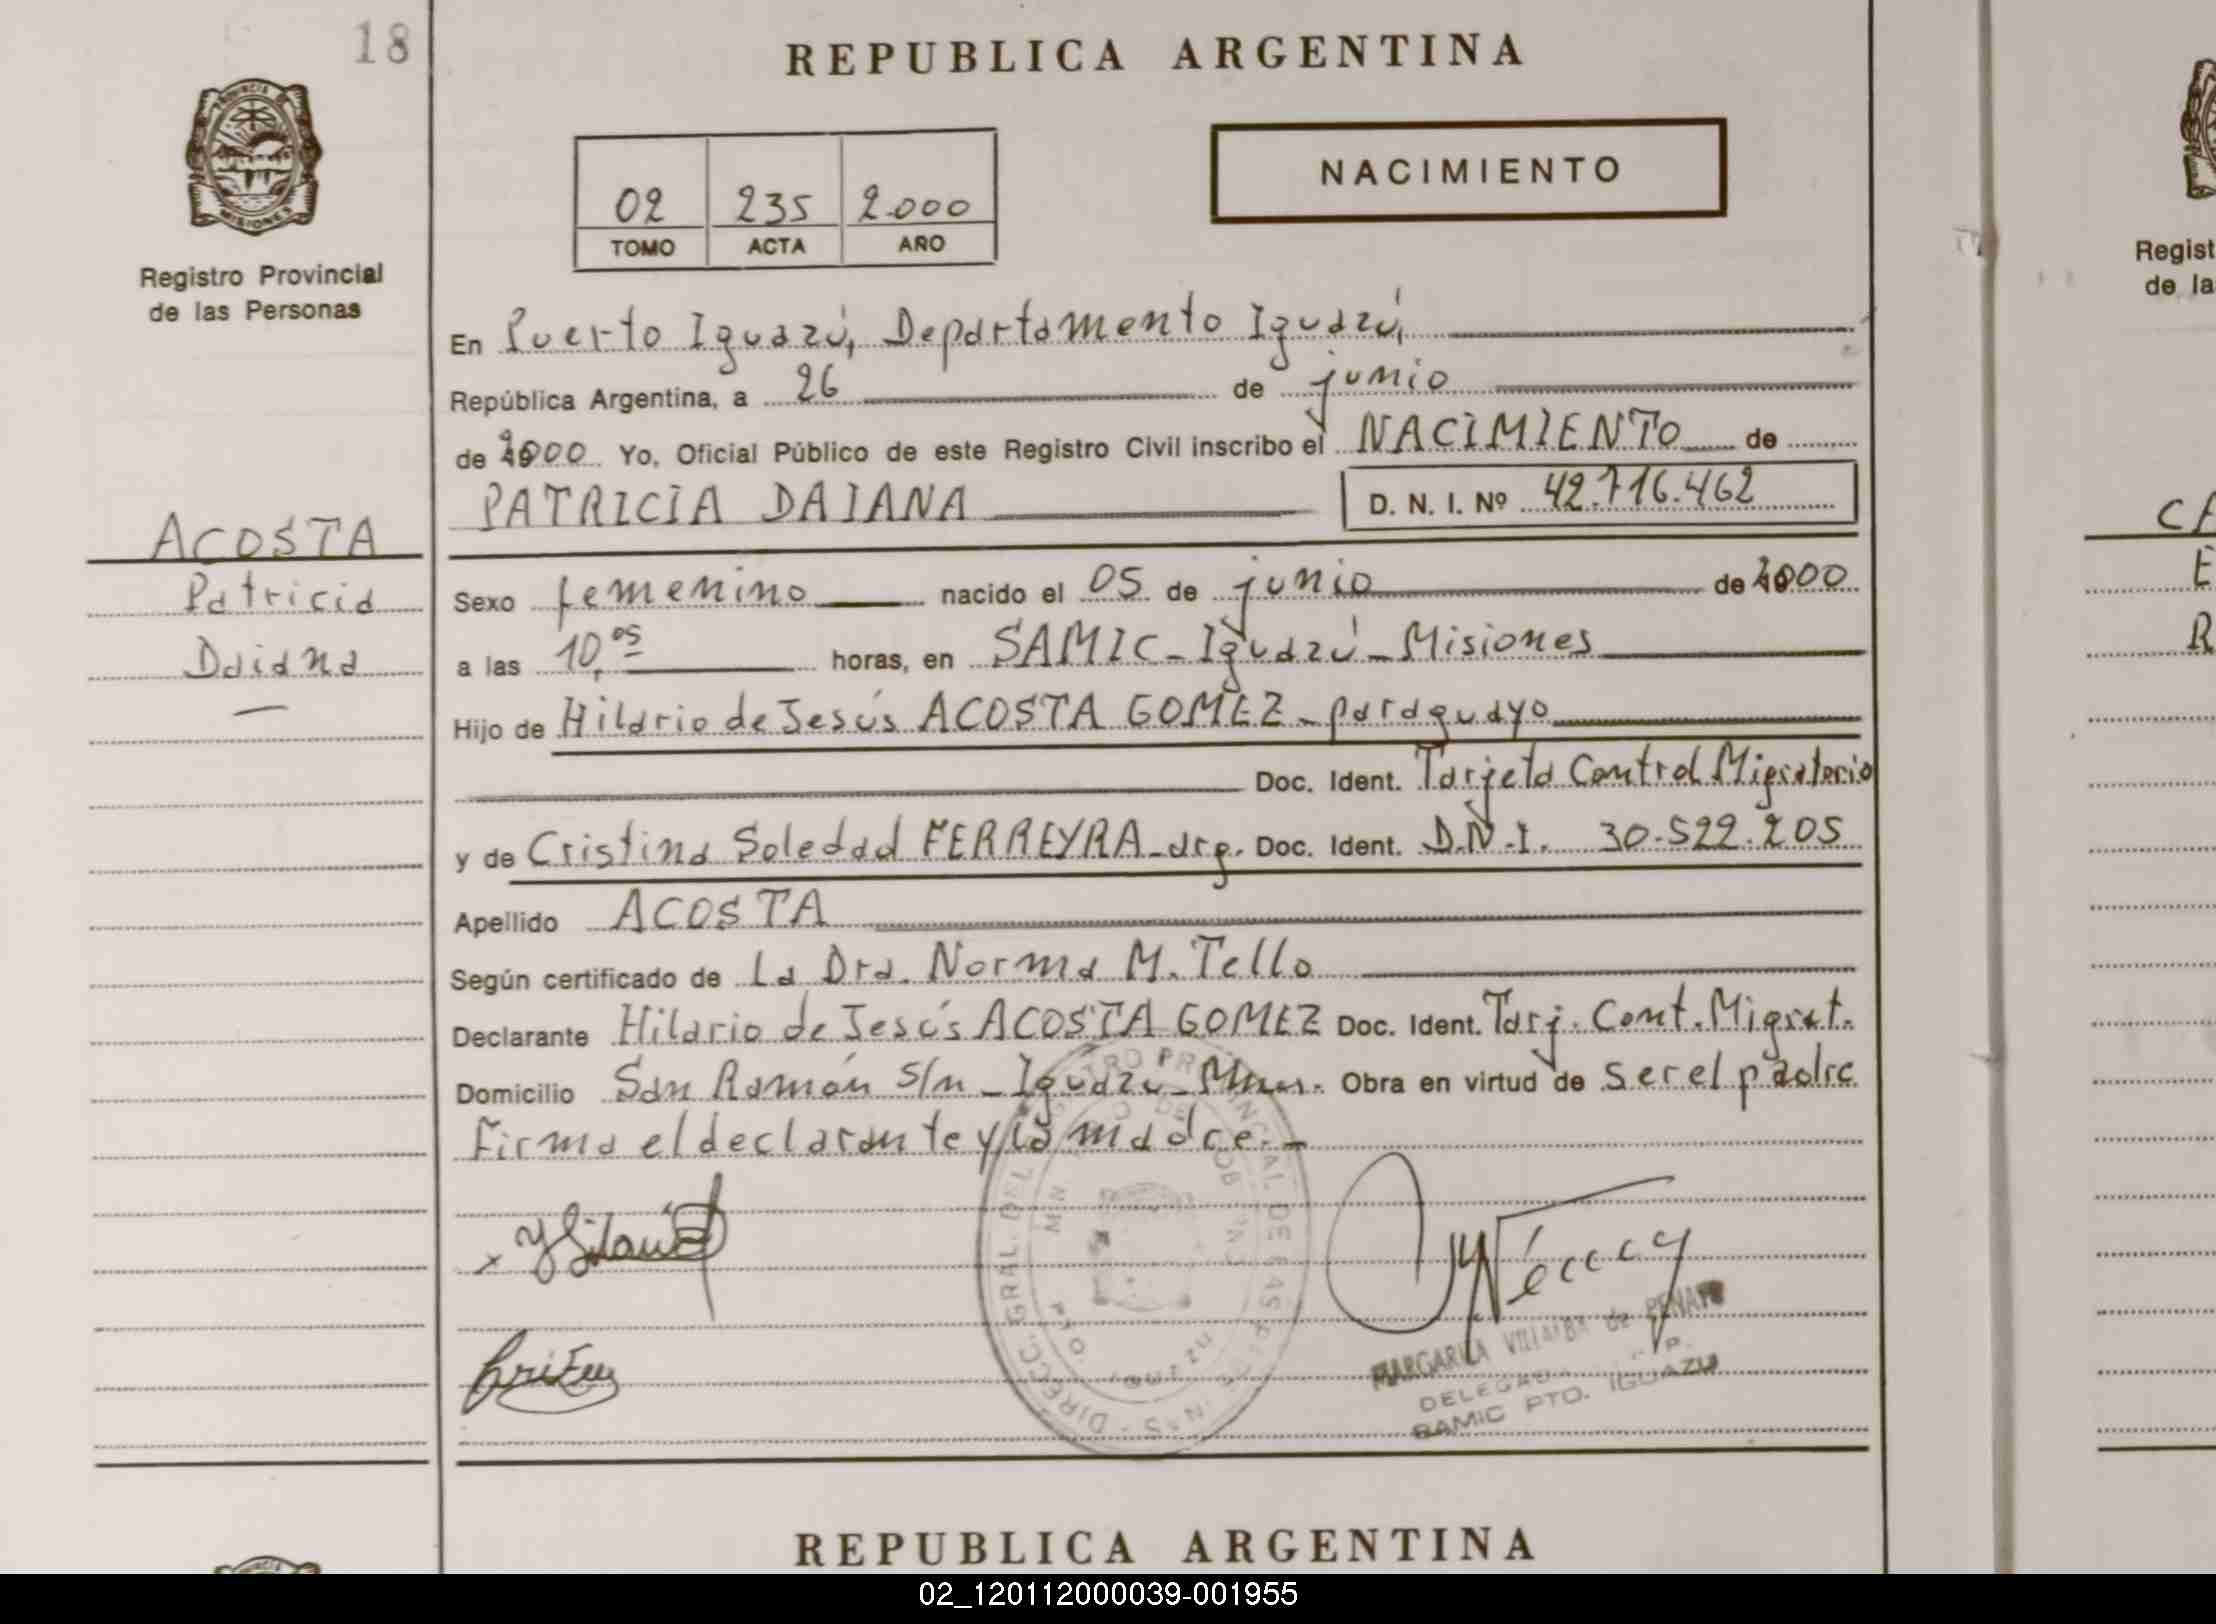 18
REPUBLICA ARGENTINA
NACIMIENTO
02 235 2.000
TOMO ACTA AÑO
PROVINCIA DE
MISIONES
Registro Provincial
de las Personas
En Puerto Iguazú, Departamento Iguazú,
República Argentina, a 26 de junio
de 2000 Yo, Oficial Público de este Registro Civil inscribo el NACIMIENTO de
PATRICIA DAIANA D. N. I. Nº 42.716.462
ACOSTA
Patricia
Daiana
Sexo femenino nacido el 05 de junio de 2000
a las 10,05 horas, en SAMIC - Iguazú - Misiones
Hijo de Hilario de Jesús ACOSTA GOMEZ - paraguayo
Doc. Ident. Tarjeta Control Migratorio
y de Cristina Soledad FERREYRA - arg. Doc. Ident. D.N.I. 30.522.205
Apellido ACOSTA
Según certificado de La Dra. Norma M. Tello
Declarante Hilario de Jesús ACOSTA GOMEZ Doc. Ident. Tarj. Cont. Migrat.
Domicilio San Ramón s/n - Iguazú - Mnes. Obra en virtud de ser el padre
Firma el declarante y la madre. -
MARGARITA VILLALBA de
DELEGADA
SAMIC PTO. IGUAZU
REPUBLICA ARGENTINA
Regist
de la
CA
E
R
02_120112000039-001955